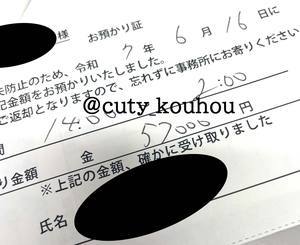 様 お預かり証
防止のため、令和 7 年 6 月 16 日に
記金額をお預かりいたしました。
ご返却となりますので、忘れずに事務所にお寄りください
@cuty kouhou
間 14:00 2:00
り金額 金 57000 円
※上記の金額、確かに受け取りました
氏名